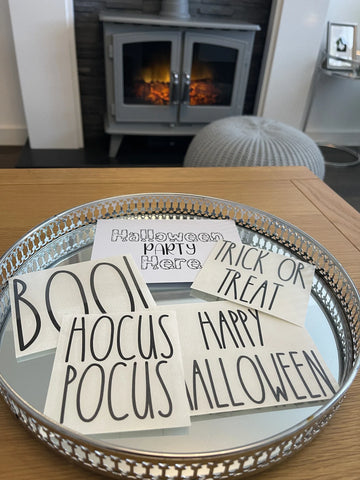 Halloween
PARTY
Here.
TRICK OR
TREAT
BOO!
HOCUS
POCUS
HAPPY
HALLOWEEN